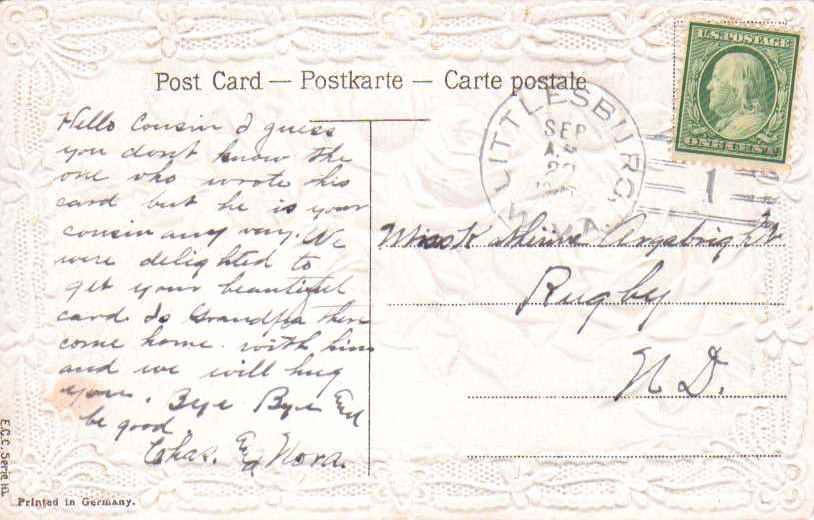 Post Card — Postkarte — Carte postale
Hello Cousin I guess
you don't know the
one who wrote this
card but he is your
cousin any way. We
were delighted to
get your beautiful
card Is Grandpa there
come home with him
and we will hug
you. Bye Bye and
be good.
Chas. & Nora.
LITTLESBURG
SEP
U.S. POSTAGE
ONE CENT
1
Miss Armstrong
Rugby
N D.
E.C.C. Serie
Printed in Germany.